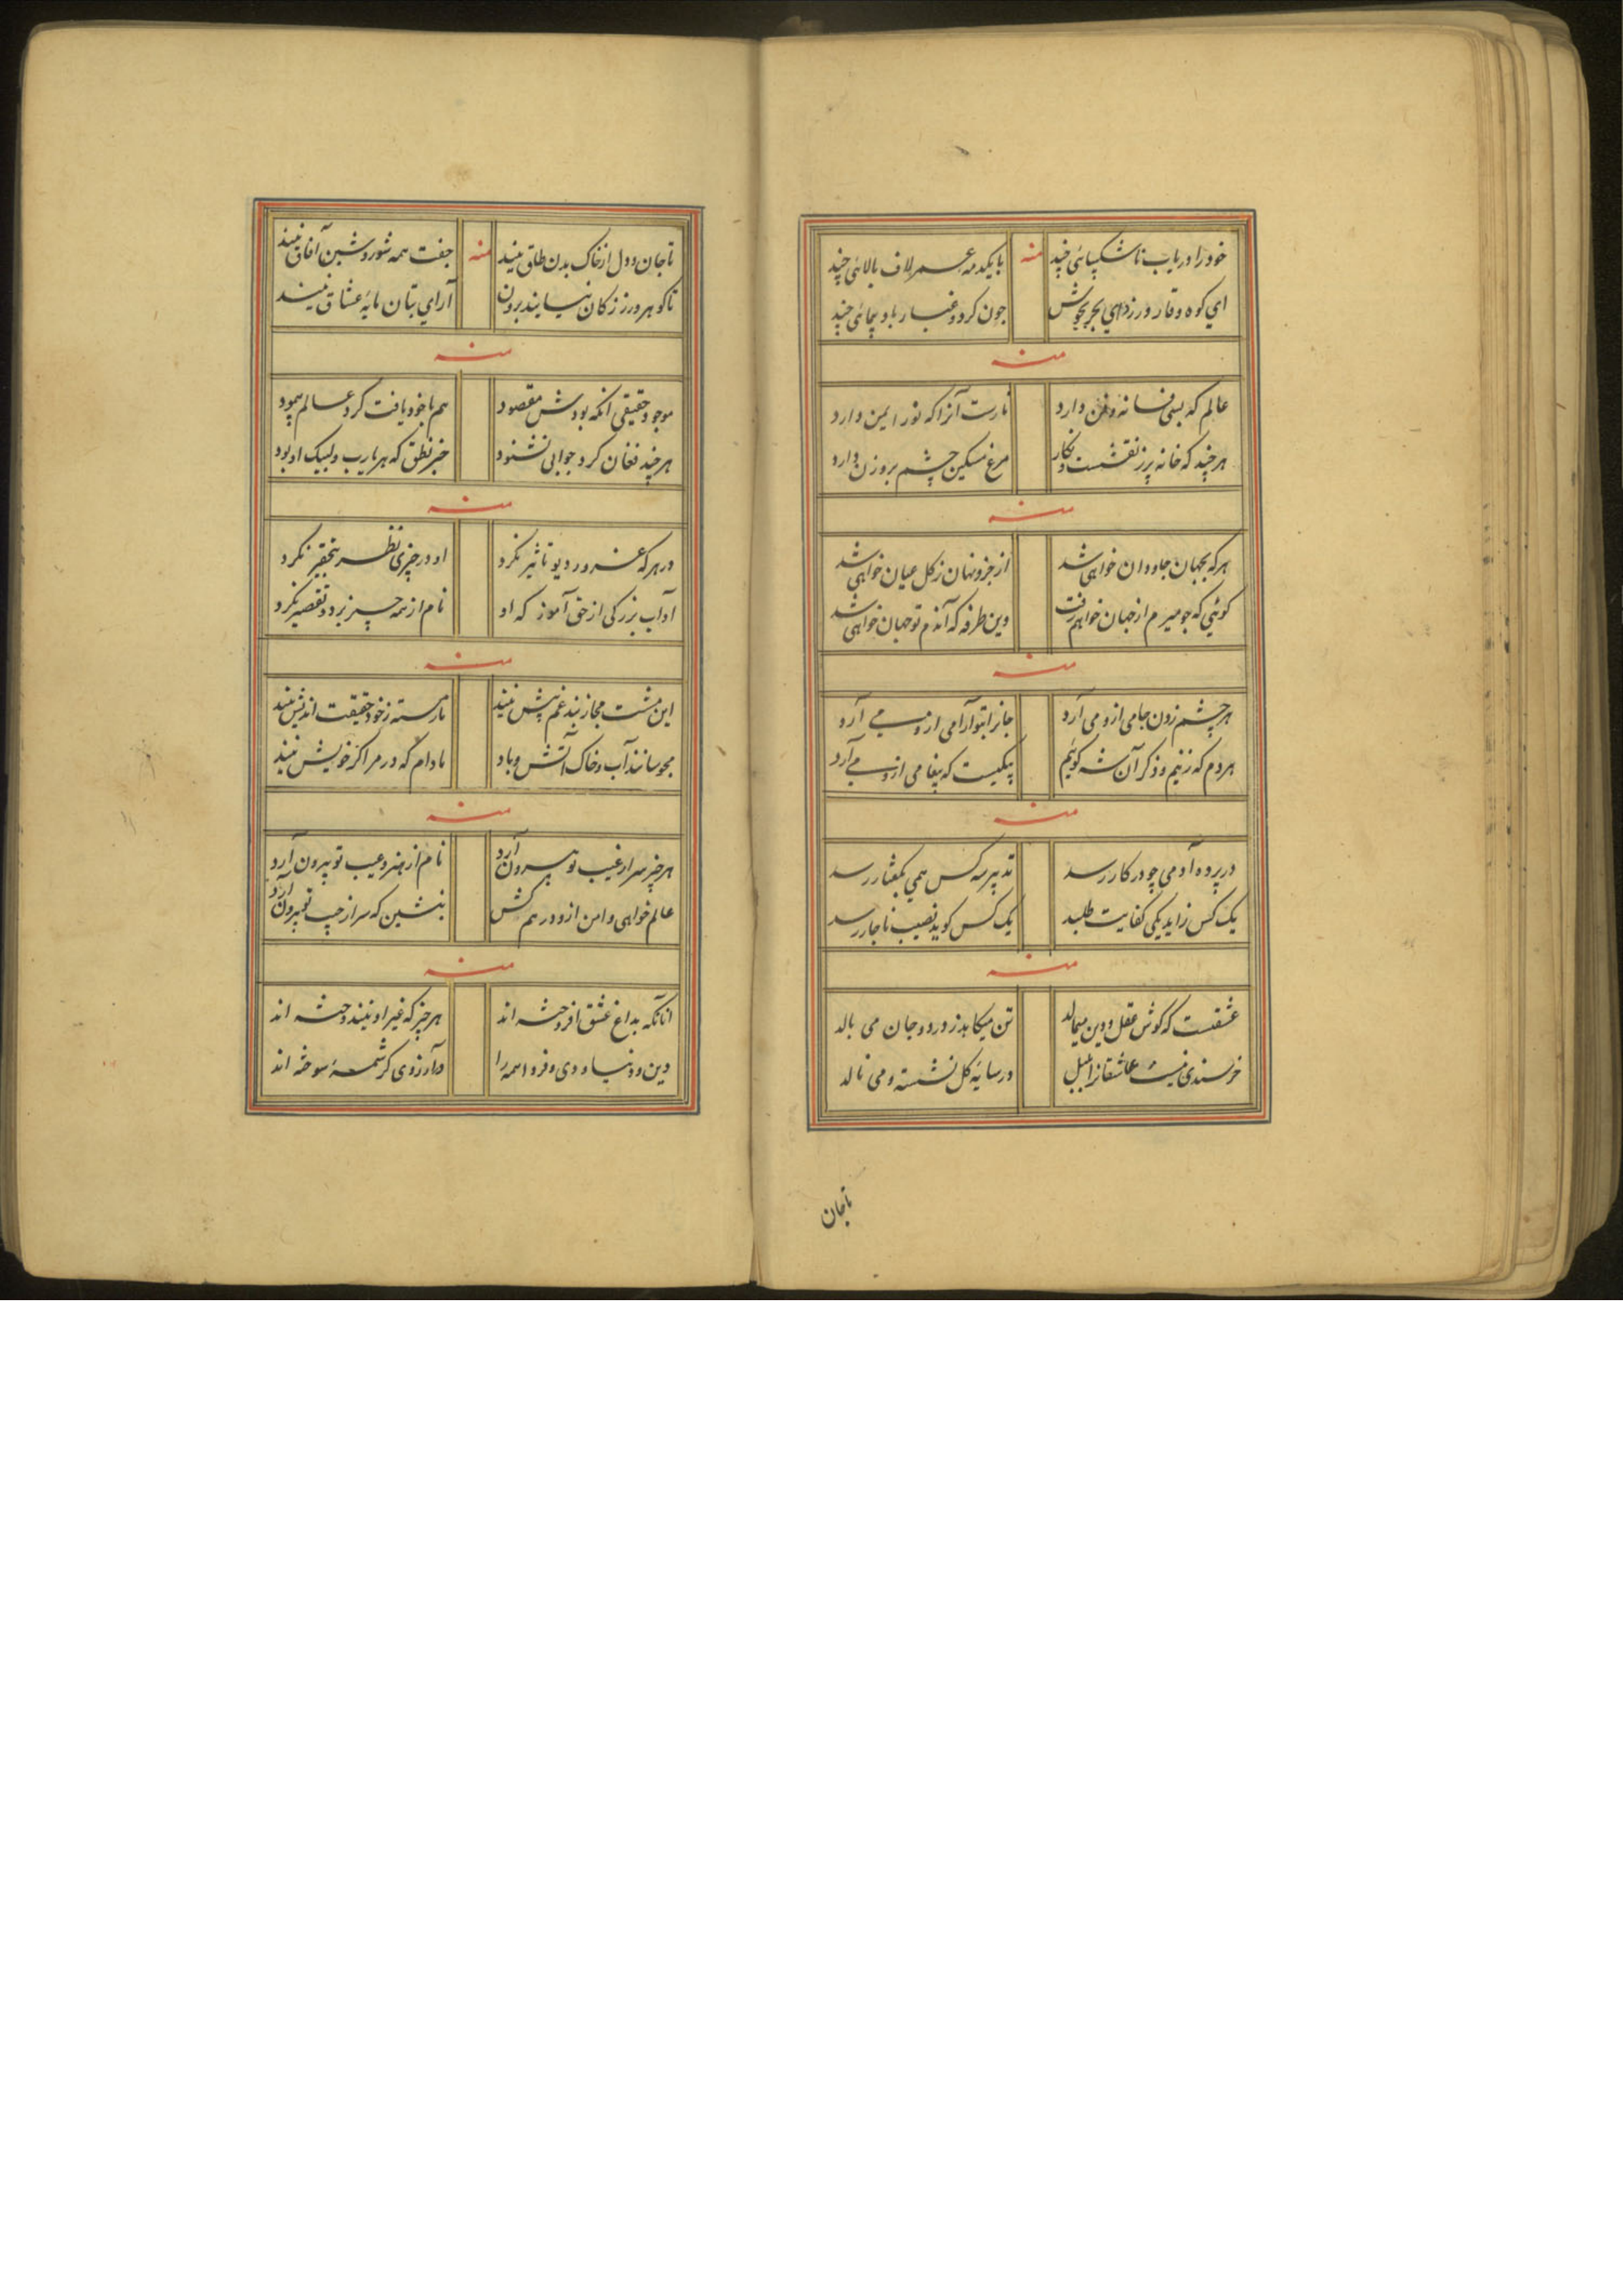 خود را دریاب ناشکیبائی چند منه با یکدمه عمر لاف بالائی چند
ای کوه وقار ورز دای بحر بجوش چون کرد و غبار باد پیمائی چند
منه
عالم که بسی فسانه و فن دارد نارست آنرا که نور ایمن دارد
هر چند که خانه پر ز نقشست و نکار مرغ مسکین چشم بروزن دارد
منه
هر که بجهان جاودان خواهی شد از جزو نهان ز کل عیان خواهی شد
کوئی که چو میرم از جهان خواهم رفت وین طرفه که آندم تو جهان خواهی شد
منه
هر چشم زدن جامی ازو می آرد جانرا بتو آرامی ازو می آرد
هر دم که زنیم و ذکر آن شه کوئیم پیکیست که پیغامی ازو می آرد
منه
در پرده آدمی چو در کار رسد تدبیر سه کس همی بمقدار رسد
یک کس زاید یکی کفایت طلبد یک کس کوید نصیب ناچار رسد
منه
عشقست که کوش عقل و دین میمالد تن میکاهد ز درد و جان می بالد
خرسندی نیست عاشقانرا بلبل در سایهٔ کل نشسته و می نالد
تاجان
تا جان و دل از خاک بدن طاق نیند منه جفت همه شور و شین آفاق نیند
تا کوهر و زر ز کان نیایند برون آرای بتان مایهٔ عشاق نیند
منه
موجود حقیقی آنکه بودش مقصود هم با خود یافت کرد عالم پیمود
هر چند فغان کرد جوابی نشنود خبر نطق که هر یارب و لبیک او بود
منه
در هر که غرور دیو تاثیر نکرد او در چیزی نظر بتحقیر نکرد
آداب بزرکی از حق آموز که او نام از همه چیز برد و تقصیر نکرد
منه
این مشت مجاز بند غم پیش نیند نارسته ز خود حقیقت اندیش نیند
محبوسانند آب و خاک آتش و باد مادام که در مراکز خویش نیند
منه
هر چیز سر از غیب تو بیرون آرد نام از هنر و عیب تو بیرون آرد
عالم خواهی دامن ازو در هم کش بنشین که سر از جیب تو بیرون آرد
منه
آنانکه بداغ عشق افروخته اند هر چیز که غیر اوبیند وخته اند
دین و دنیا و دی و فردا همه را در آرزوی کرشمهٔ سوخته اند